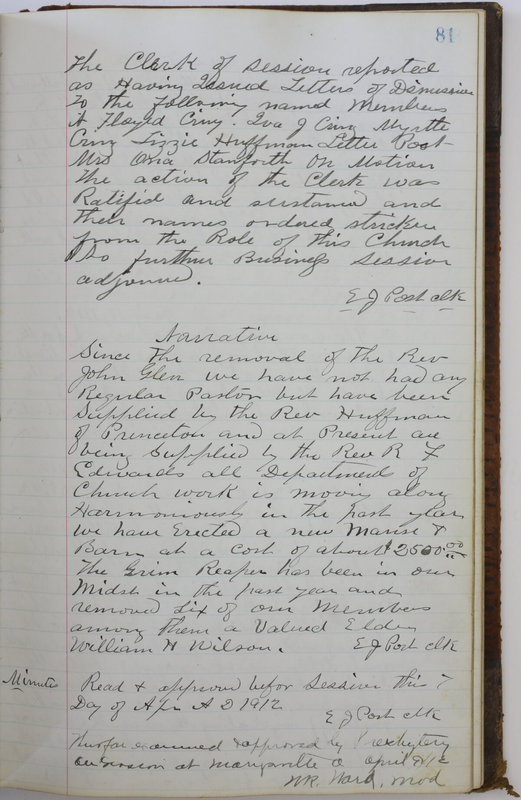 81
The Clerk of Session reported
as Having Issued Letters of Dismission
To the following named Members
Floyd Criny Iva J Criny Myrtle
Criny Lizzie Huffman Letter Post
Mrs Ona Stanforth On Motion
the action of the Clerk was
Ratified and sustained and
their names ordered stricken
from the Role of this Church
No further Business Session
adjourned.
E J Post clk
Narrative
Since the removal of the Rev
John Glen we have not had any
Regular Pastor but have been
Supplied by the Rev Huffman
of Princeton and at Present are
being Supplied by the Rev R F
Edwards all Department of
Church work is moving along
Harmoniously in the past year
we have Erected a new Manse &
Barn at a cost of about $2500.00
The Grim Reaper has been in our
Midst in the past year and
removed six of our Members
among them a Valued Elder
William H Wilson. E J Post clk
Minutes
Read & approved befor Session this 7
Day of Apr A D 1912
E J Post clk
Thusfar examined & approved by Presbytery
in session at Marysville O April
W.R. Ward, Mod